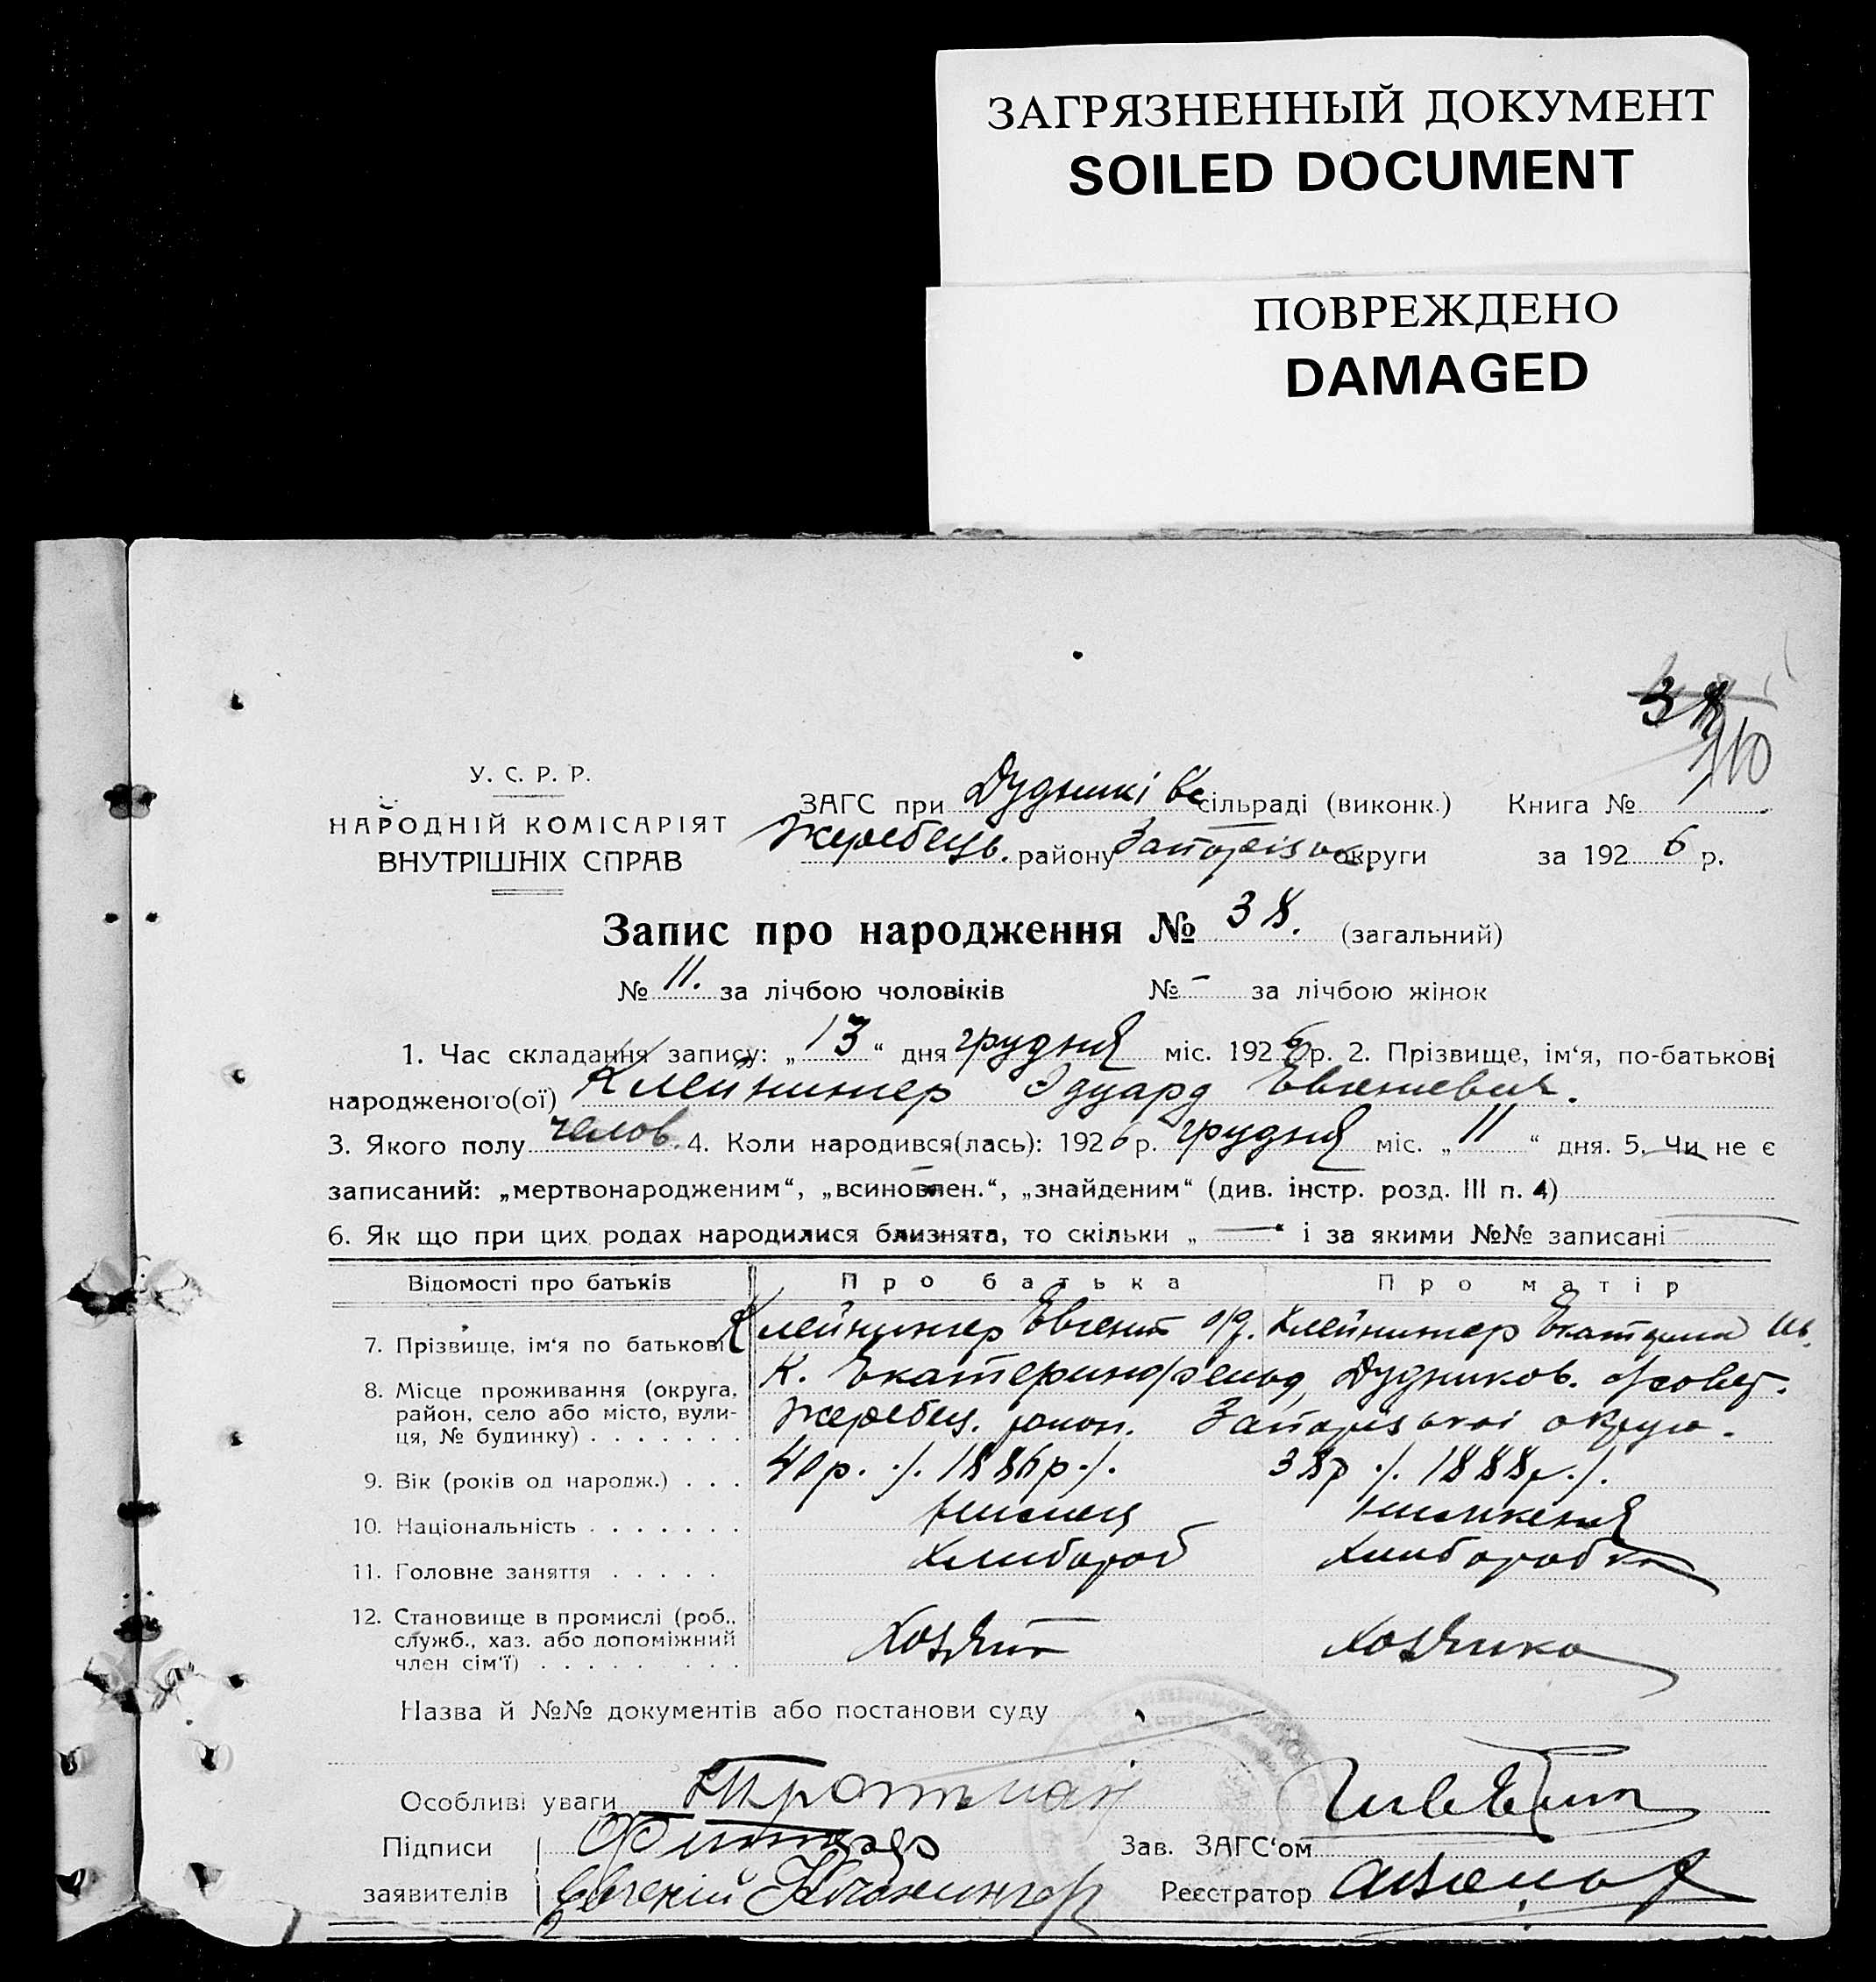 ЗАГРЯЗНЕННЫЙ ДОКУМЕНТ
SOILED DOCUMENT
ПОВРЕЖДЕНО
DAMAGED
38
110
У. С. Р. Р.
НАРОДНІЙ КОМІСАРІЯТ
ВНУТРІШНІХ СПРАВ
ЗАГС при Дудникі вс сільраді (виконк.) Книга №
Жеребець. району Запоріз округи за 192 6 р.
Запис про народження № 38. (загальний)
№ 11. за лічбою чоловіків № – за лічбою жінок
1. Час складання запису: „ 13 “ дня грудня міс. 192 6 р. 2. Прізвище, ім‘я, по-батькові
народженого(ої) Клейнингер Эдуард Евгениевич.
3. Якого полу челов. 4. Коли народився(лась): 192 6 р. грудня міс. „ 11 “ дня. 5. Чи не є
записаний: „мертвонародженим“, „всиновлен.“, „знайденим“ (див. інстр. розд. III п. 4)
6. Як що при цих родах народилися близнята, то скільки „ — “ і за якими №№ записані —
Відомості про батьків Про батька Про матір
7. Прізвище, ім‘я по батькові Клейнингер Евгений Клейнингер Екатерина Ив.
8. Місце проживання (округа, К. Екатеринфельд, Дудников.
район, село або місто, вули- Жеребец. район. Запорізькоі округи.
ця, № будинку) . . . . . . .
9. Вік (років од народж.) . . . 40 р. ./. 1886 р ./. 38 р ./. 1888 р ./.
10. Національність . . . . . . . нимець нимкеня
11. Головне заняття . . . . . хлибороб хлиборобка
12. Становище в промислі (роб.,
служб., хаз. або допоміжний хозяин хозяика
член сім‘ї) . . . . . . . . .
Назва й №№ документів або постанови суду
Особливі уваги
Підписи
Зав. ЗАГС‘ом
заявителів Евгений Клейнингер Реєстратор